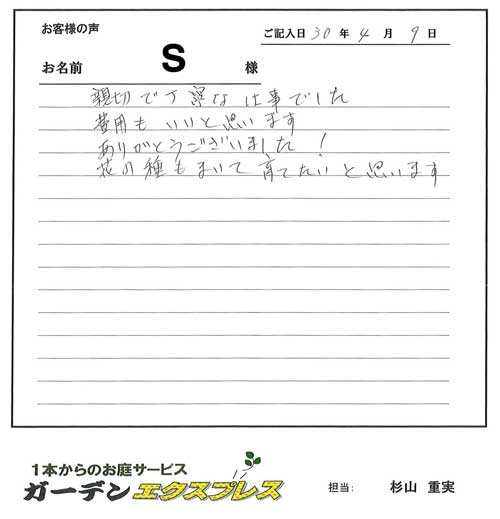 お客様の声
ご記入日 30 年 4 月 9 日
お名前 S 様
親切で丁寧な仕事でした
費用もいいと思います
ありがとうございました！
花の種もまいて育てたいと思います
1本からのお庭サービス
ガーデンエクスプレス
担当: 杉山 重実